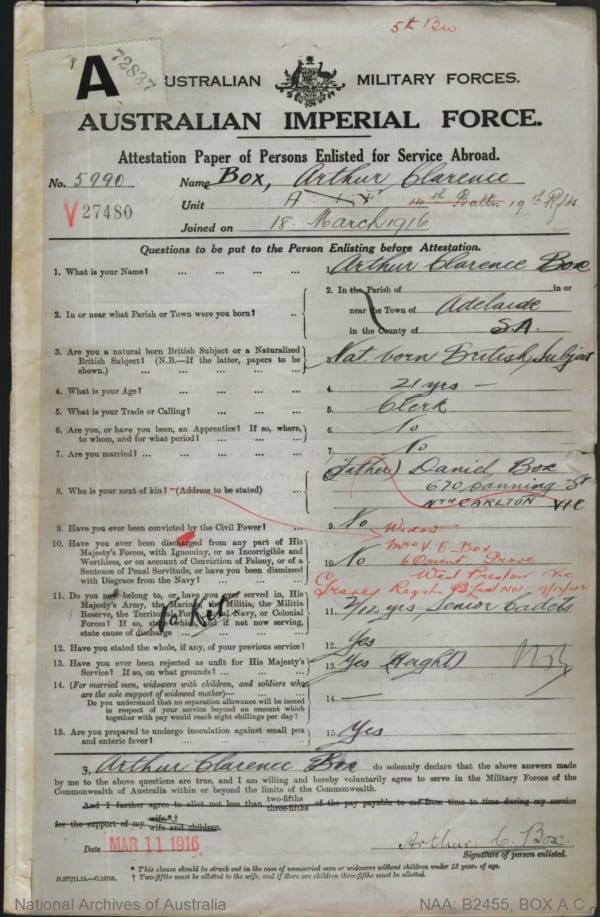 5th Bn
A 72837
AUSTRALIAN MILITARY FORCES.
AUSTRALIAN IMPERIAL FORCE.
Attestation Paper of Persons Enlisted for Service Abroad.
No. 5990 Name Box, Arthur Clarence
V 27480 Unit 14th Battn 19th Rfts
Joined on 18 March 1916
Questions to be put to the Person Enlisting before Attestation.
1. What is your Name? ... ... ... ... 1. Arthur Clarence Box
2. In or near what Parish or Town were you born? .. 2. In the Parish of in or
near the Town of Adelaide
in the County of S.A.
3. Are you a natural born British Subject or a Naturalized
British Subject? (N.B.—If the latter, papers to be
shown.) ... ... ... ... 3. Nat. born British Subject
4. What is your Age? ... ... ... ... 4. 21 yrs —
5. What is your Trade or Calling? ... ... ... 5. Clerk
6. Are you, or have you been, an Apprentice? If so, where,
to whom, and for what period? ... ... ... 6. No
7. Are you married? ... ... ... ... 7. No
8. Who is your next of kin? (Address to be stated) ... (Father) Daniel Box
670 Canning St
Nth CARLTON VIC
9. Have you ever been convicted by the Civil Power? ... 9. No
Widow
Mrs V. E. Box
6 Orient Grove
West Preston Vic
10. Have you ever been discharged from any part of His
Majesty's Forces, with Ignominy, or as Incorrigible and
Worthless, or on account of Conviction of Felony, or of a
Sentence of Penal Servitude, or have you been dismissed
with Disgrace from the Navy? ... ... ... 10. No
Graves Regist
11. Do you now belong to, or have you ever served in, His
Majesty's Army, the Marines, the Militia, the Militia
Reserve, the Territorial Force, Royal Navy, or Colonial
Forces? If so, state which, and if not now serving,
state cause of discharge ... ... ... 11. 2/12 yrs, Senior Cadets
12. Have you stated the whole, if any, of your previous service? 12. Yes
13. Have you ever been rejected as unfit for His Majesty's
Service? If so, on what grounds? ... ... ... 13. Yes (Height)
14. (For married men, widowers with children, and soldiers who
are the sole support of widowed mother)—
Do you understand that no separation allowance will be issued
in respect of your service beyond an amount which
together with pay would reach eight shillings per day? 14. —
15. Are you prepared to undergo inoculation against small pox
and enteric fever? ... ... ... ... 15. Yes
I, Arthur Clarence Box do solemnly declare that the above answers made
by me to the above questions are true, and I am willing and hereby voluntarily agree to serve in the Military Forces of the
Commonwealth of Australia within or beyond the limits of the Commonwealth.
And I further agree to allot not less than two-fifths three-fifths of the pay payable to me from time to time during my service
for the support of my wife*† wife and children.
Date MAR 11 1916 Arthur C. Box
Signature of person enlisted.
* This clause should be struck out in the case of unmarried men or widowers without children under 18 years of age.
† Two-fifths must be allotted to the wife, and if there are children three-fifths must be allotted.
National Archives of Australia NAA: B2455, BOX A C